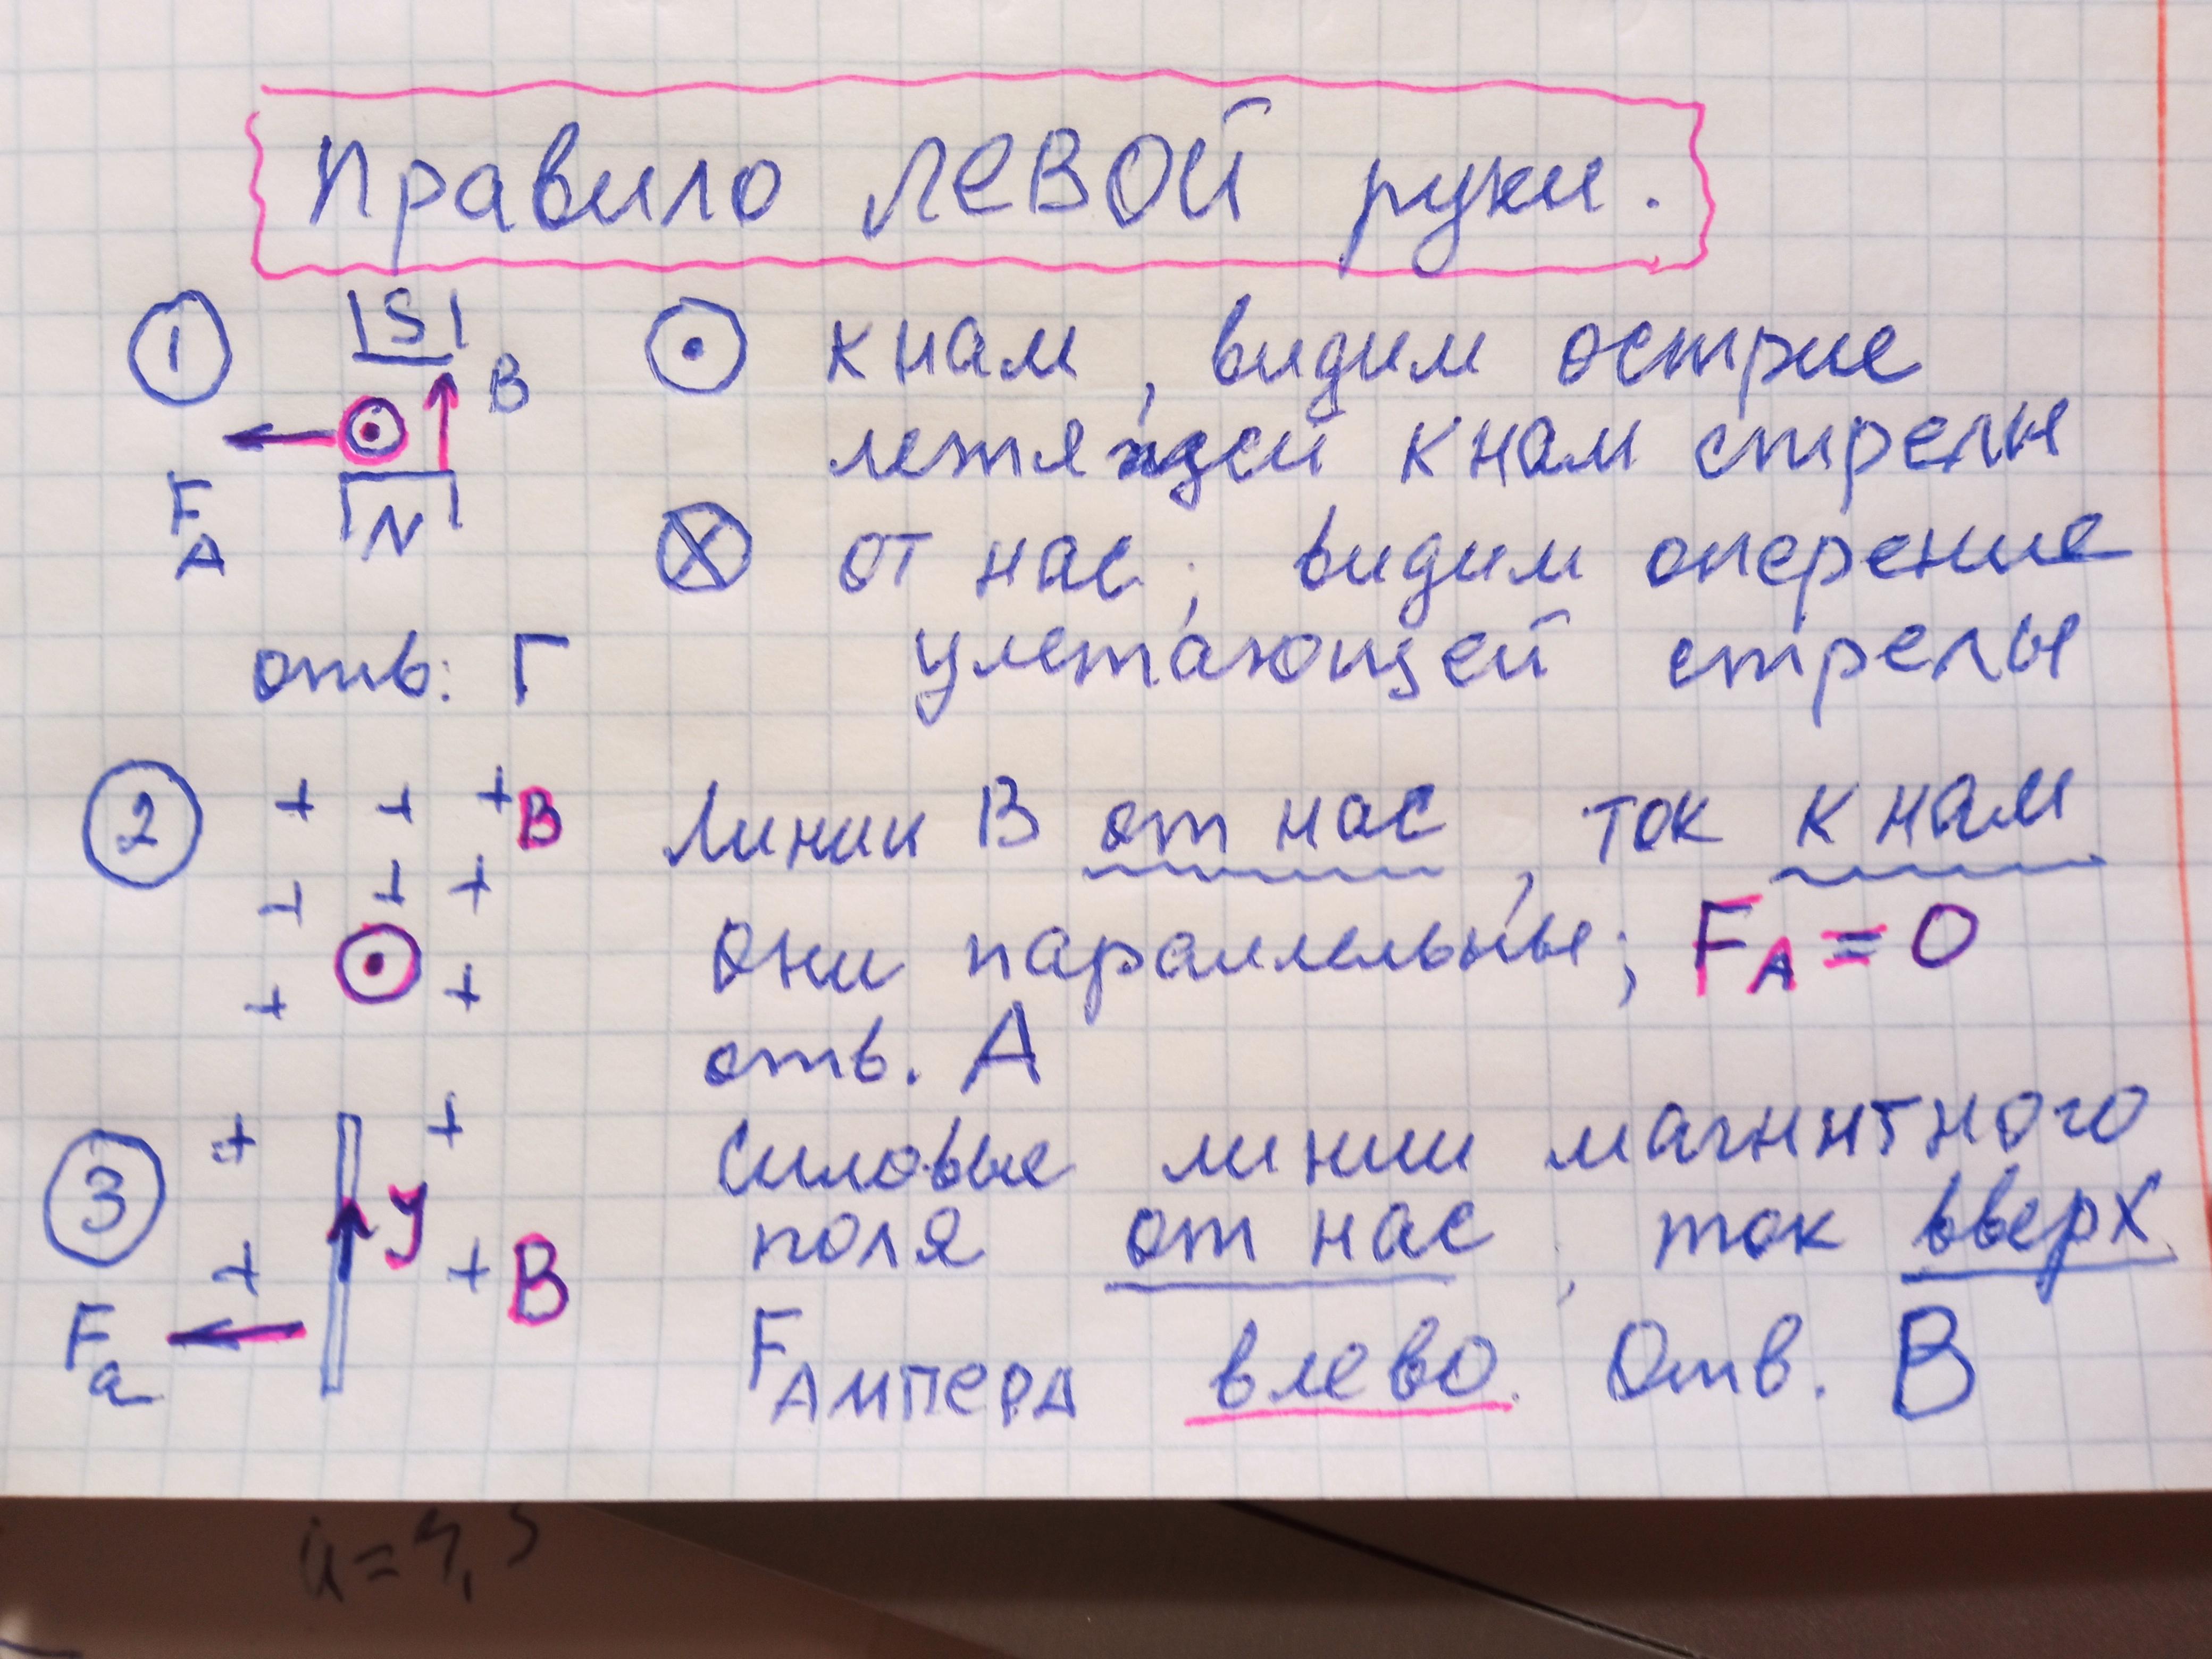 Правило ЛЕВОЙ руки.
1 S B F A N
⊙ к нам, видим острие
летящей к нам стрелы
⊗ от нас, видим оперение
улетающей стрелы
отв: Г
2 + + + B
+ + +
+ ⊙ +
Линии В от нас, ток к нам
они параллельны; FА = 0
отв. А
3 + + J
+ + B
Fа
Силовые линии магнитного
поля от нас, ток вверх
FАмпера влево. Отв. В